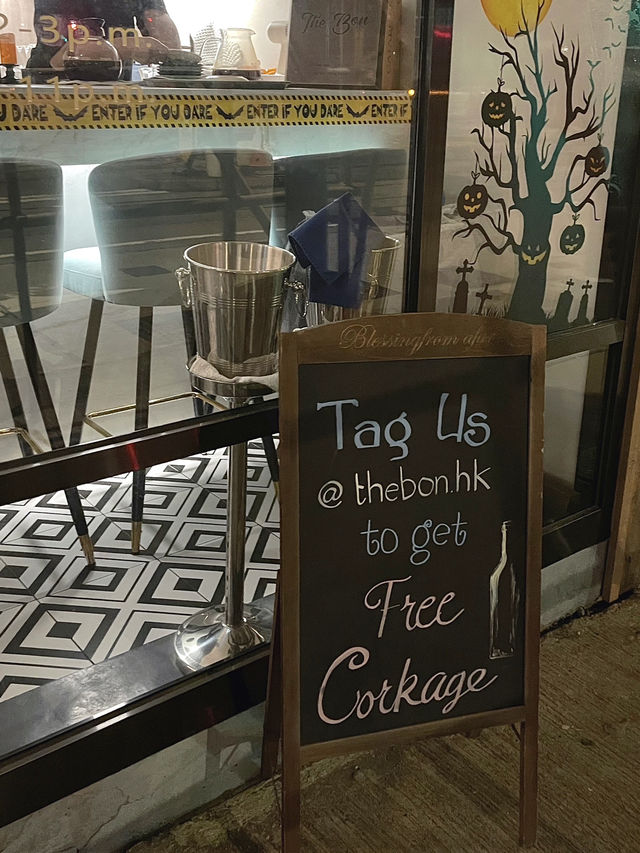 -3p.m.
The Bon
U DARE ENTER IF YOU DARE ENTER IF YOU DARE ENTER IF
Blessingfrom
Tag Us
@thebon.hk
to get
Free
Corkage